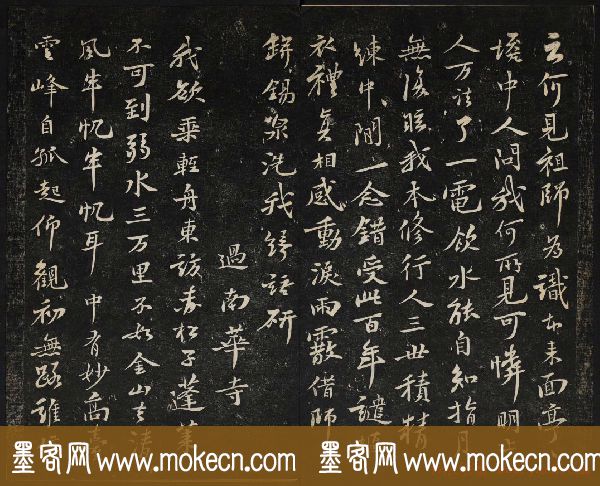 云何見祖師為識本来面亭
塔中人問我何所見可憐明
人万法了一電飲水能自知指月
無復眩我本修行人三世積精
鍊中間一念錯受此百年譴
衣禮真相感動淚雨霰借師
缾錫泉洗我綺語研
過南華寺
我欲乘輕舟東訪赤松子蓬莱
不可到弱水三万里不如金山去清
風半帆半帆耳中有妙高臺
雲峰自孤起仰觀初無路誰
墨客网www.mokecn.com 墨客网www.mokecn.com